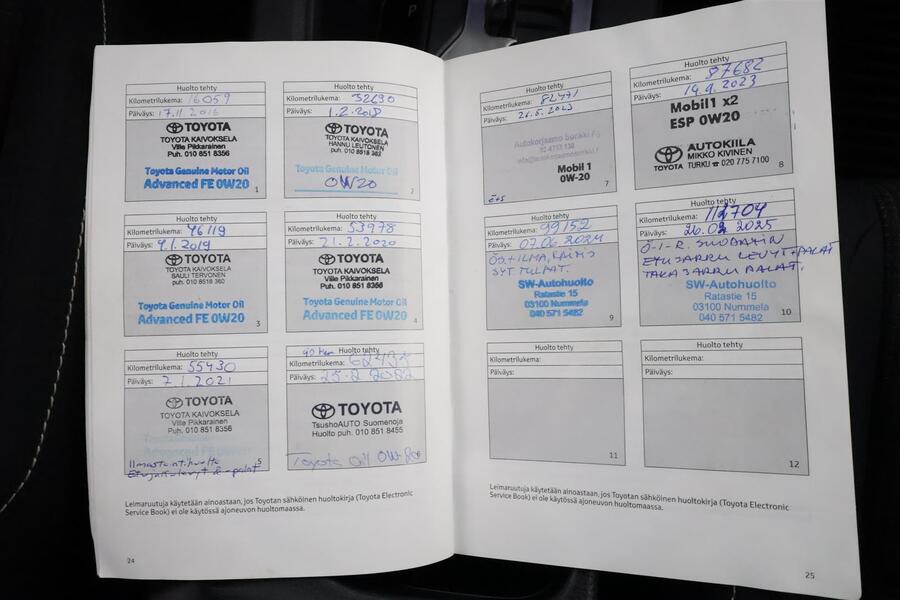 Huolto tehty
Kilometrilukema: 16059
Päiväys: 17.11.2016
TOYOTA
TOYOTA KAIVOKSELA
Ville Pikkarainen
Puh. 010 851 8356
Toyota Genuine Motor Oil
Advanced FE 0W20
1
Huolto tehty
Kilometrilukema: 32690
Päiväys: 1.2.2018
TOYOTA
TOYOTA KAIVOKSELA
HANNU LEUTONEN
puh. 010 8518 362
Toyota Genuine Motor Oil
0W20
2
Huolto tehty
Kilometrilukema: 46119
Päiväys: 9.1.2019
TOYOTA
TOYOTA KAIVOKSELA
SAULI TERVONEN
puh. 010 8518 360
Toyota Genuine Motor Oil
Advanced FE 0W20
3
Huolto tehty
Kilometrilukema: 53978
Päiväys: 21.2.2020
TOYOTA
TOYOTA KAIVOKSELA
Ville Pikkarainen
Puh. 010 851 8356
Toyota Genuine Motor Oil
Advanced FE 0W20
4
Huolto tehty
Kilometrilukema: 55430
Päiväys: 7.1.2021
TOYOTA
TOYOTA KAIVOKSELA
Ville Pikkarainen
Puh. 010 851 8356
Advanced FE 0W20
5
Ilmastointihuolto
Etujarrulevyt & -palat
Huolto tehty
Kilometrilukema:
Päiväys:
TOYOTA
TsushoAUTO Suomenoja
Huolto puh. 010 851 8455
Toyota Oil 0W-
Leimaruutuja käytetään ainoastaan, jos Toyotan sähköinen huoltokirja (Toyota Electronic
Service Book) ei ole käytössä ajoneuvon huoltomaassa.
24
Huolto tehty
Kilometrilukema: 82471
Päiväys: 2023
Autokorjaamo
Mobil 1
0W-20
7
Ö+S
Huolto tehty
Kilometrilukema: 87682
Päiväys: 14.9.2023
Mobil1 x2
ESP 0W20
TOYOTA
AUTOKIILA
MIKKO KIVINEN
TURKU ☎ 020 775 7100
8
Huolto tehty
Kilometrilukema: 99152
Päiväys: 07.06.2024
ÖS+ILMA, RAITIS
SYT.TULPAT.
SW-Autohuolto
Ratastie 15
03100 Nummela
040 571 5482
9
Huolto tehty
Kilometrilukema: 112704
Päiväys: 26.02.2025
Ö-I-R. SUODATIN
ETUJARRU LEVYT+PALAT
TAKAJARRU PALAT.
SW-Autohuolto
Ratastie 15
03100 Nummela
040 571 5482
10
Huolto tehty
Kilometrilukema:
Päiväys:
11
Huolto tehty
Kilometrilukema:
Päiväys:
12
Leimaruutuja käytetään ainoastaan, jos Toyotan sähköinen huoltokirja (Toyota Electronic
Service Book) ei ole käytössä ajoneuvon huoltomaassa.
25